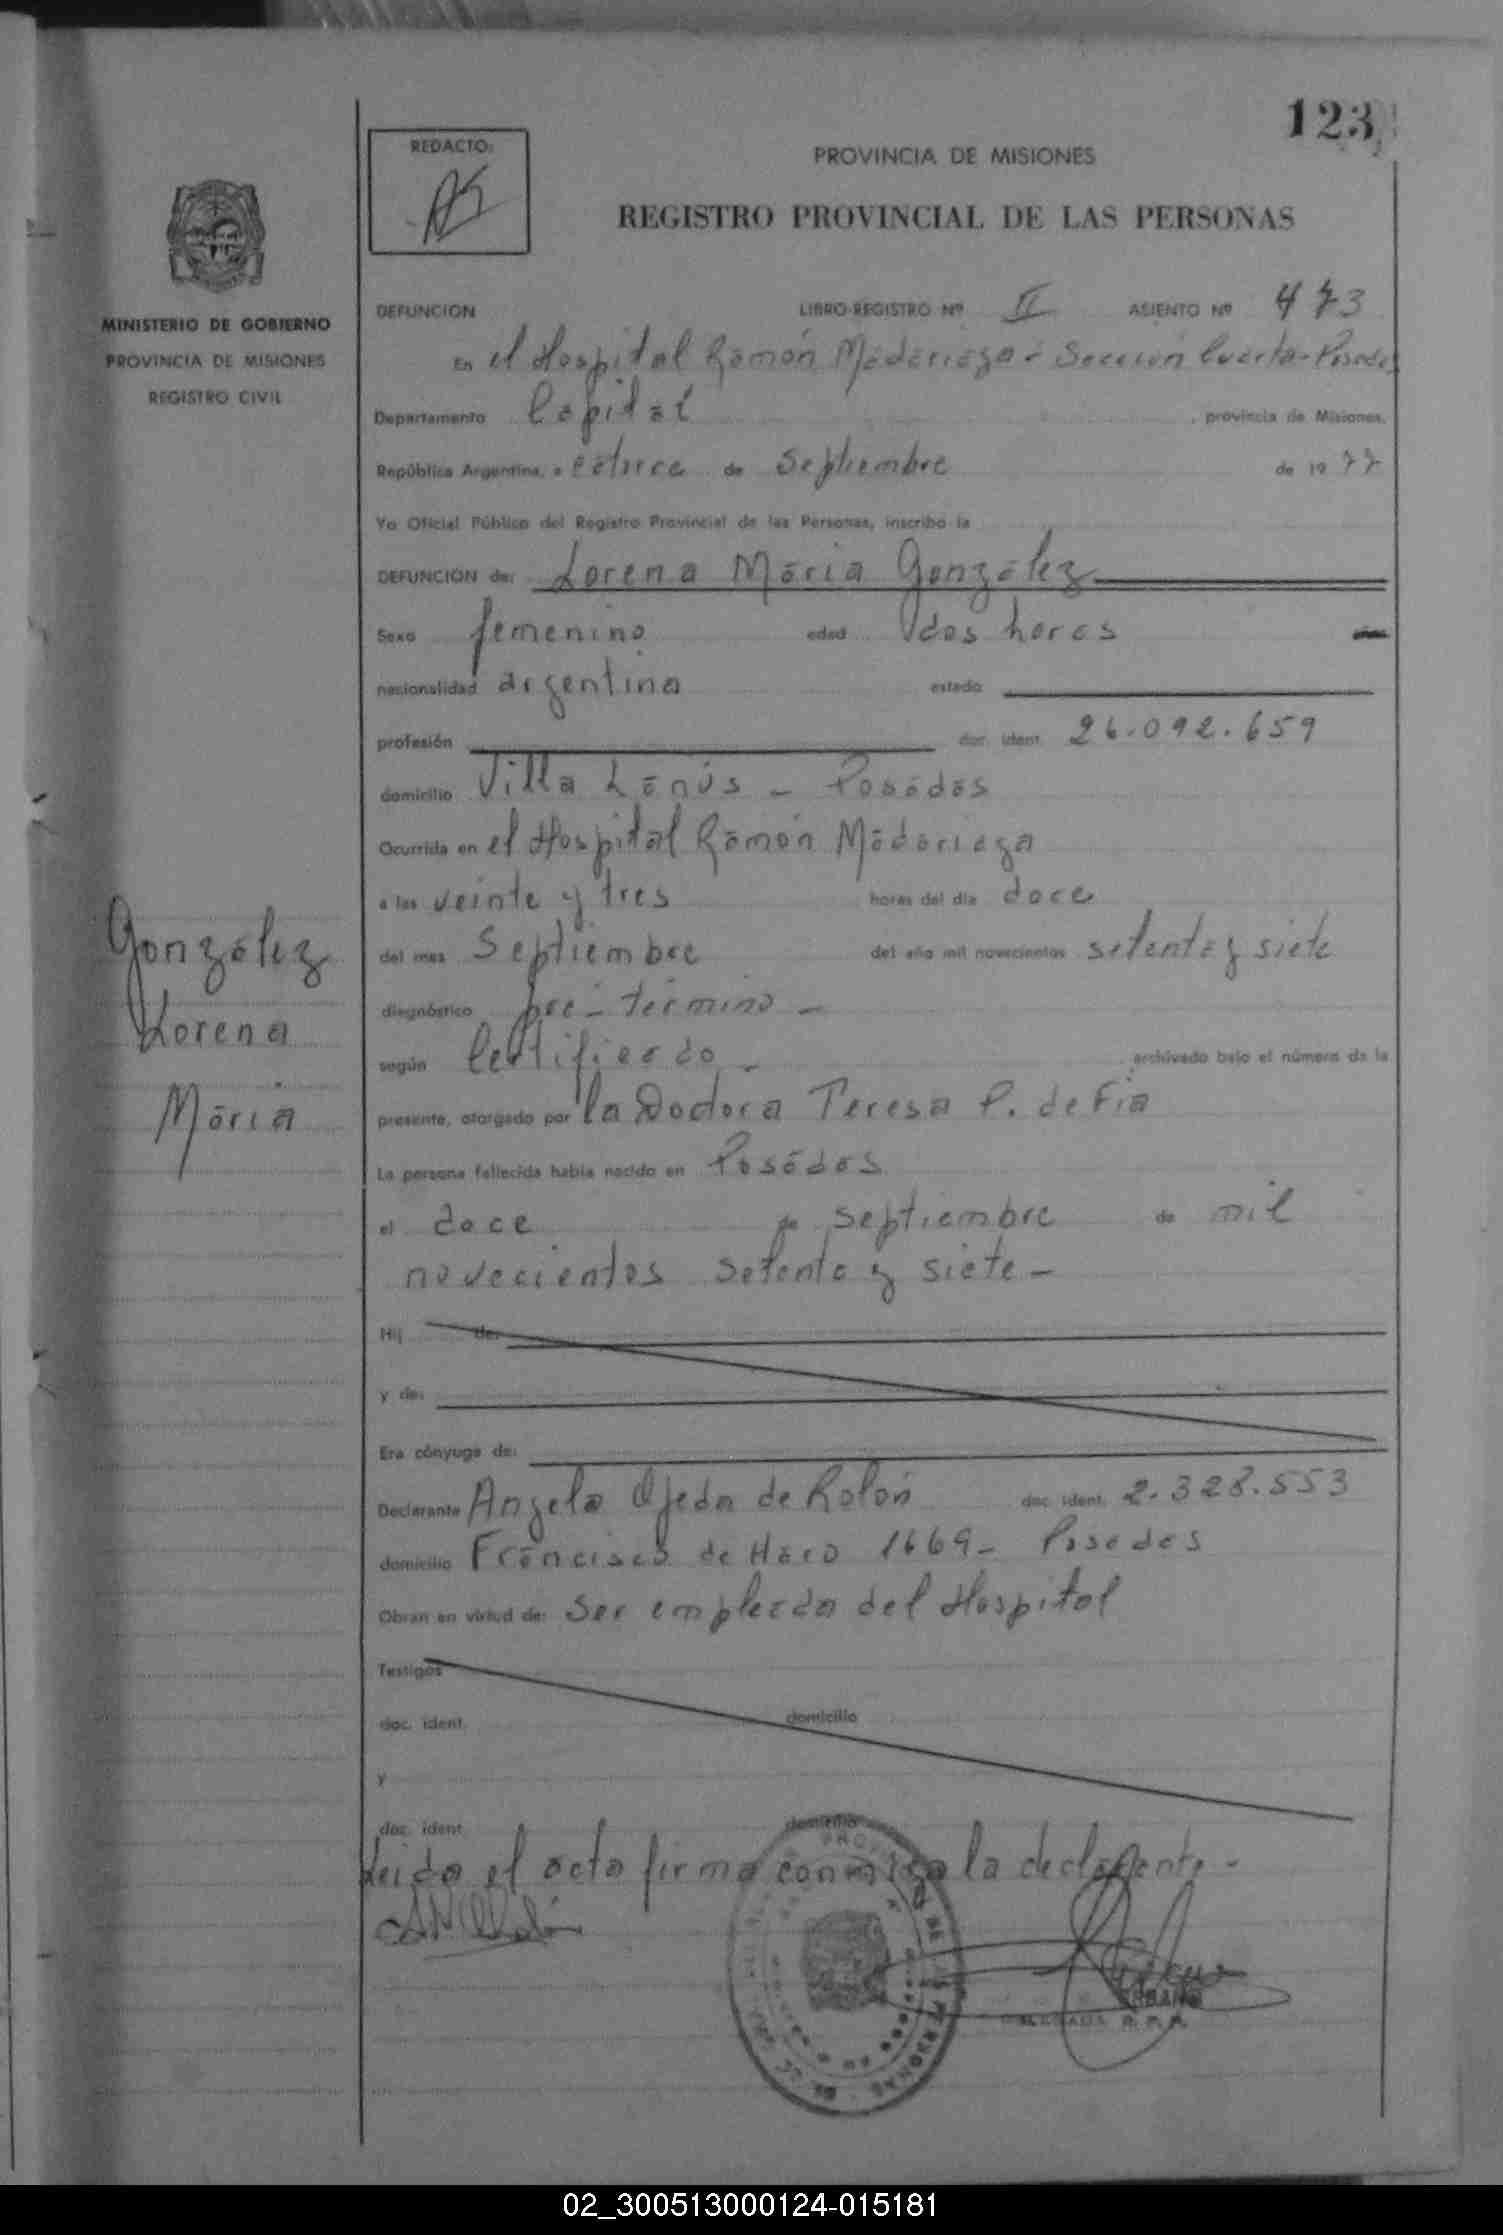 123
REDACTO:
PROVINCIA DE MISIONES
REGISTRO PROVINCIAL DE LAS PERSONAS
MINISTERIO DE GOBIERNO
PROVINCIA DE MISIONES
REGISTRO CIVIL
DEFUNCION LIBRO-REGISTRO Nº II ASIENTO Nº 473
En el Hospital Ramón Madariaga - Sección Cuarta - Posadas
Departamento Capital, provincia de Misiones,
República Argentina, a catorce de Septiembre de 1977
Yo Oficial Público del Registro Provincial de las Personas, inscribo la
DEFUNCION de: Lorena María González
Sexo femenino edad dos horas
nacionalidad argentina estado
profesión doc. ident. 26.092.659
domicilio Villa Lanús - Posadas
Ocurrida en el Hospital Ramón Madariaga
a las veinte y tres horas del día doce
del mes Septiembre del año mil novecientos setenta y siete
diagnóstico pre-término -
según Certificado - archivado bajo el número de la
presente, otorgado por la Doctora Teresa P. de Fia
La persona fallecida había nacido en Posadas
el doce de septiembre de mil
novecientos setenta y siete -
Hij de:
y de:
Era cónyuge de:
Declarante Angela Ojeda de Rolón doc. ident. 2.328.553
domicilio Francisco de Haro 1669 - Posadas
Obran en virtud de: Ser empleada del Hospital
Testigos
doc. ident. domicilio
y
doc. ident. domicilio
Leida el acta firma conmigo la declarante -
González
Lorena
María
02_300513000124-015181